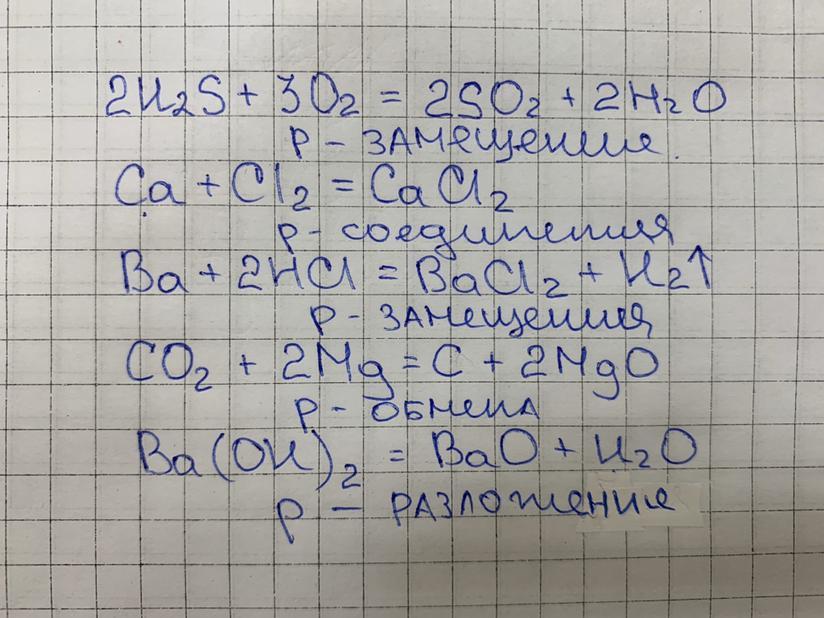 2H₂S + 3O₂ = 2SO₂ + 2H₂O
р - замещение.
Ca + Cl₂ = CaCl₂
р - соединения
Ba + 2HCl = BaCl₂ + H₂↑
р - замещения
CO₂ + 2Mg = C + 2MgO
р - обмена
Ba(OH)₂ = BaO + H₂O
р - разложение